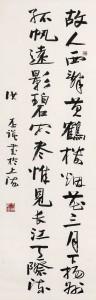 故人西辞黄鹤楼烟花三月下扬州
孤帆远影碧空尽惟见长江天际流
李 书于上海